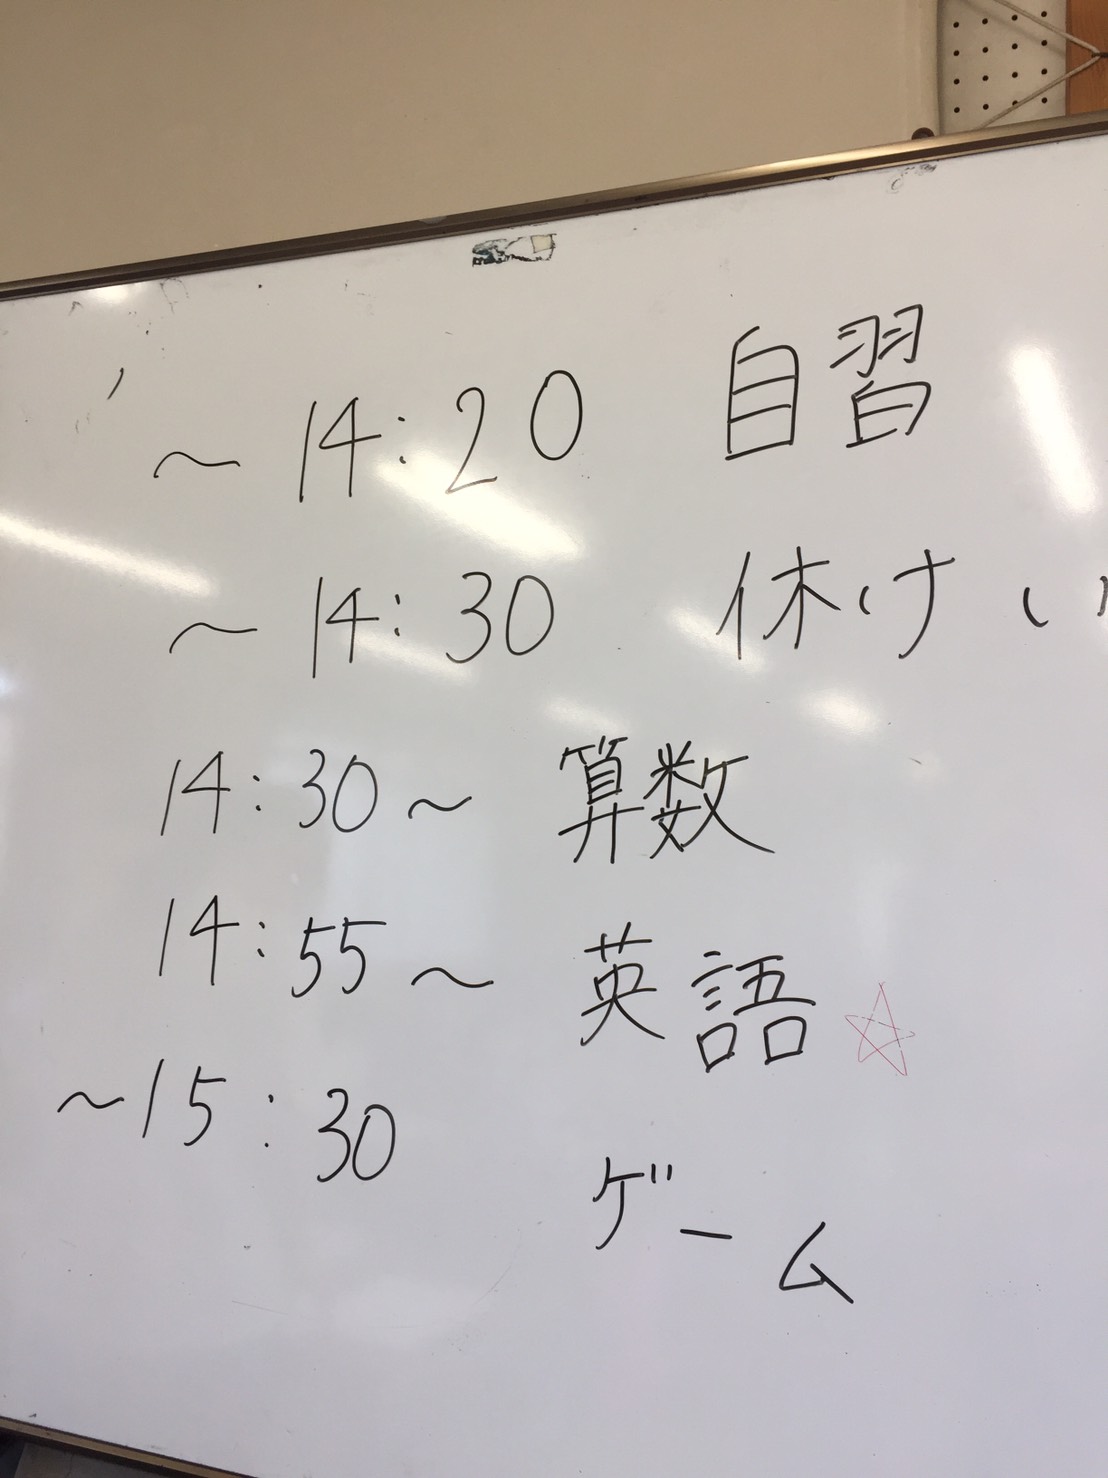 ～14:20 自習
～14:30 休けい
14:30～ 算数
14:55～ 英語☆
～15:30
ゲーム